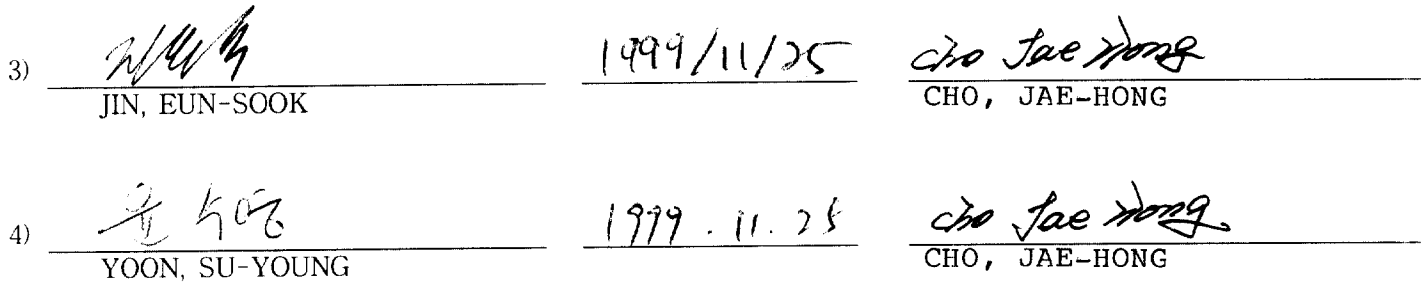 3) 진은숙 1999/11/25 Cho Jae Hong
JIN, EUN-SOOK CHO, JAE-HONG
4) 윤수영 1999.11.25 Cho Jae Hong
YOON, SU-YOUNG CHO, JAE-HONG